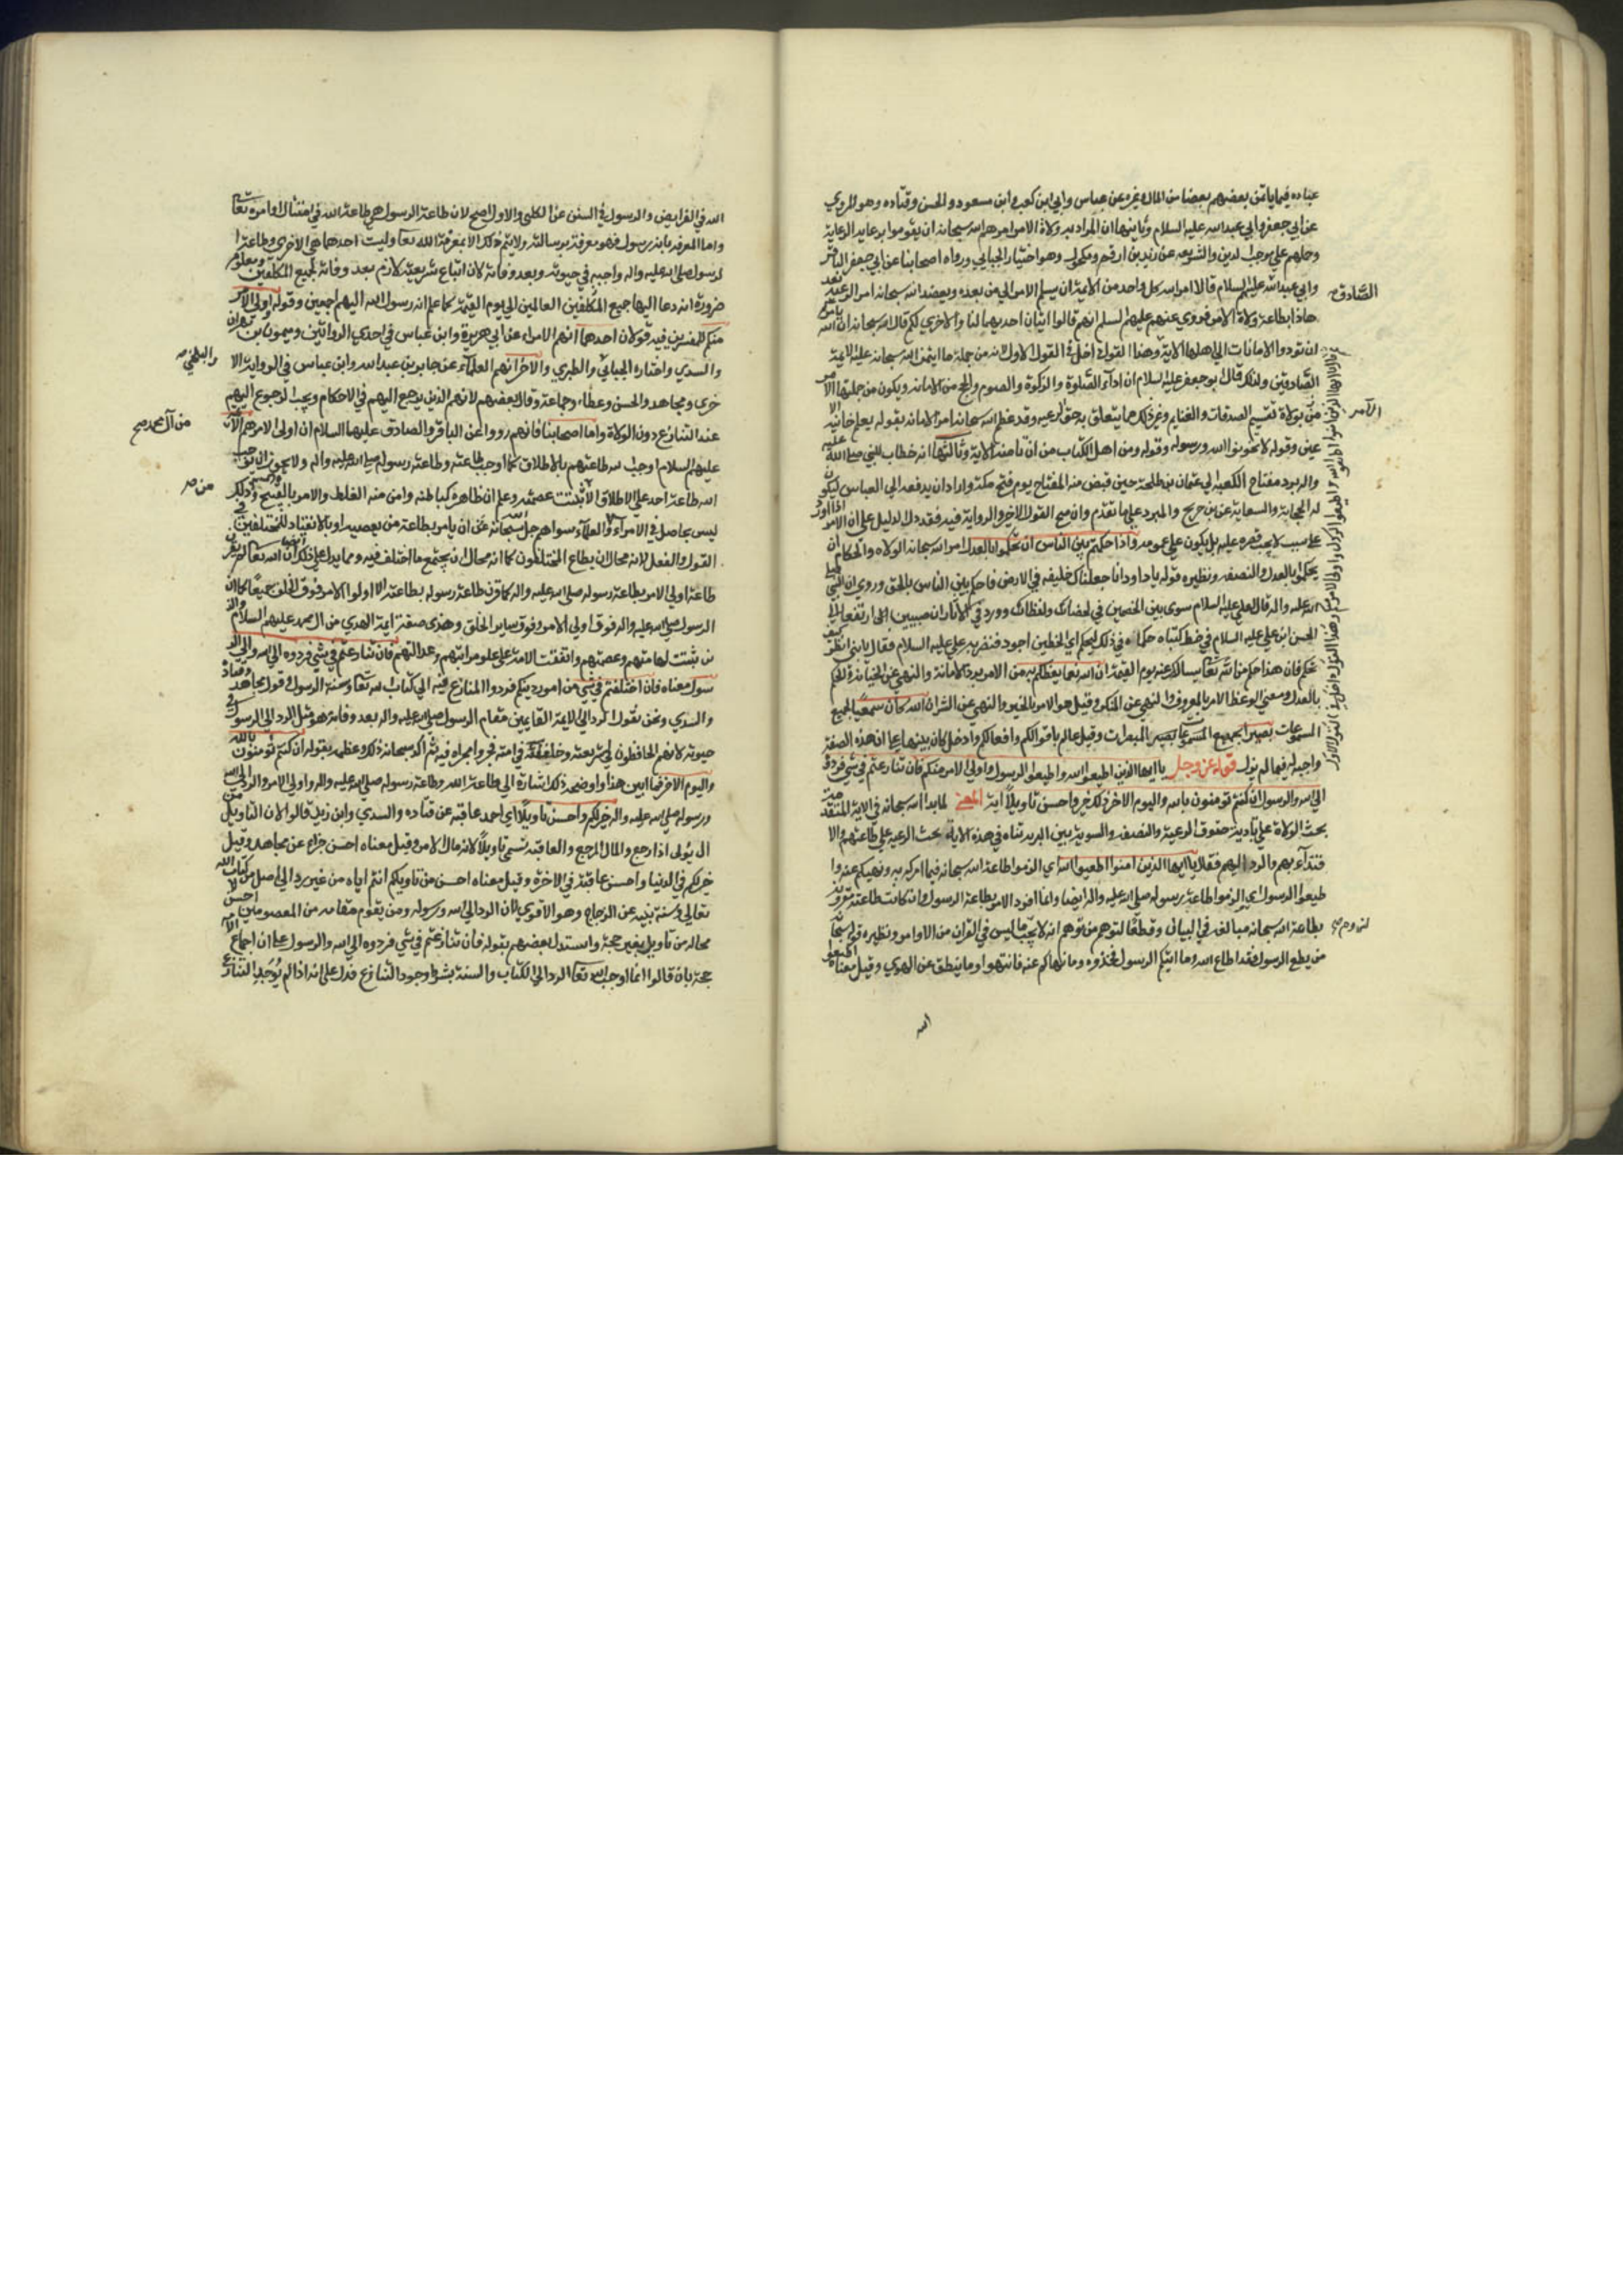 عباده فيما ياتمن بعضهم بعضا من المال وغيره عن عباس وابي ابن كعب وابن مسعود والحسن وقتاده وهو المروي
عن ابي جعفر وابي عبد الله عليه السلام وثانيها ان المراد به ولاة الامر امرهم الله سبحانه ان يقوموا برعاية الرعاية
وحملهم على موجب الدين والشريعه عن زيد بن ارقم ومكحول وهو اختيار الجبايي ورواه اصحابنا عن ابي جعفر الباقر
وابي عبد الله عليهم السلام قالا امر الله كل واحد من الايمة ان يسلم الامر الي من بعده ويعضده انه سبحانه امر الرعيه بعد
هاذا بطاعة ولاة الامر فروي عنهم عليهم السلم انهم قالوا ايتان احديهما لنا والاخري لكم قال الله سبحانه ان الله يامركم
ان تودوا الامانات الي اهلها الاية وهذا القول داخل في القول الاول لانه من جملة ما ايتمن الله سبحانه عليه الايمة
الصادقين ولذلك قال ابو جعفر عليه السلام ان اداء الصلوة والزكوة والصوم والحج من الامانه ويكون من جملتها الامر
من ولاة تقسيم الصدقات والغنايم وغير ذلك مما يتعلق به حق الرعيه وقد عظم الله سبحانه امر الامانه بقوله يعلم خاينة الا
عين وقوله لا تخونوا الله ورسوله وقوله ومن اهل الكتاب من ان تامنه الاية وثالثها انه خطاب للنبي صلي الله عليه
واله برد مفتاح الكعبه الي عثمان بن طلحة حين قبض منه المفتاح يوم فتح مكة واراد ان يدفعه الي العباس ليكون
له الحجابة والسقاية عن ابن جريح والمعول على ما تقدم وان صح القول الاخر والرواية فيه فقد دل الدليل على ان الامر اذا ورد
على سبب لا يجب قصره عليه بل يكون على عمومه واذا حكمتم بين الناس ان تحكموا بالعدل امر الله سبحانه الولاه والحكام ان
يحكموا بالعدل والنصفه ونظيره قوله يا داود انا جعلناك خليفه في الارض فاحكم بين الناس بالحق وروي ان النبي صلي
الله عليه واله قال لعلي عليه السلام سوي بين الخصمين في لحضك ولفظك وورد في الاثار ان صبيين ارتفعا الي
الحسن ابن علي عليه السلام في خط كتباه حكماه في ذلك ليحكم اي الخطين اجود فنضر به علي عليه السلام فقال يا بني انظر كيف
تحكم فان هذا حكم من الله تعا يسالك عنه يوم القيمة ان الله نعما يعظكم به من الامر برد الامانة والنهي عن الخيانة والحكم
بالعدل ومعني الوعظ الامر بالمعروف والنهي عن المنكر وقيل هو الامر بالخير والنهي عن الشر ان الله كان سميعا لجميع
المسموعات بصيرا بجميع المبصرات وقيل عالم باقوالكم وافعالكم وادخل كان بينها على ان هذه الصفة
واجبه له فيما لم يزل قوله عز وجل يا ايها الذين اطيعوا الله واطيعوا الرسول واولي الامر منكم فان تنازعتم في شي فردوه
الي الله والرسول ان كنتم تومنون بالله واليوم الاخر ذلك خير واحسن تاويلا اية المعني لما بدا الله سبحانه في الاية المتقدمة
بحث الولاة على تادية حقوق الرعية والنصفه والسوية بين البريه ثناه في هذه الاية بحث الرعيه على طاعتهم والا
قتداء بهم والرد اليهم فقال يا ايها الذين امنوا اطيعوا الله اي الزموا طاعة الله سبحانه فيما امركم به ونهيكم عنه وا
طيعوا الرسول اي الزموا طاعة رسوله صلي الله عليه واله ايضا وانما افرد الامر بطاعة الرسول وان كانت طاعته مقرونه
بطاعة الله سبحانه مبالغه في البيان وقطعا لتوهم من توهم انه لا يجب ما ليس في القران من الاوامر ونظيره قوله سبحا
من يطع الرسول فقد اطاع الله وما اتيكم الرسول فخذوه وما نهاكم عنه فانتهوا وما ينطق عن الهوي وقيل معناه اطيعوا
الله
الصادق
الامر
الله في الفرايض والرسول في السنن عن الكلبي والاول اصح لان طاعة الرسول هي طاعة الله في امتثال اوامره تعا
واما المعرفه بانه رسول فهو معرفة برسالته ولا يتم ذلك الا بمعرفة الله تعا وليست احدهما هي الاخري وطاعة ا
لرسول صلى الله عليه واله واجبه في حيوته وبعد وفاته لان اتباع شريعته لازم بعد وفاته لجميع المكلفين ومعلوم
ضرورة انه دعا اليها جميع المكلفين العالمين الي يوم القيمة كما علم انه رسول الله اليهم اجمعين وقوله اولي الامر
منكم للمفسرين فيه قولان احدهما انهم الامراء عن ابي هريرة وابن عباس في احدي الروايتين وميمون بن مهران
والسدي واختاره الجبايي والطبري والاخر انهم العلماء عن جابر بن عبد الله وابن عباس في الرواية الا
خري ومجاهد والحسن وعطاء وجماعة وقال بعضهم لانهم الذين يرجع اليهم في الاحكام ويجب الرجوع اليهم
عند التنازع دون الولاة واما اصحابنا فانهم رووا عن الباقر والصادق عليهما السلام ان اولي الامر هم الائمة
عليهم السلام اوجب الله طاعتهم بالاطلاق كما اوجب طاعته وطاعة رسوله صلي الله عليه واله ولا يجوز ان يوجب
الله طاعة احد علي الاطلاق الا ثبتت عصمته وعلم ان ظاهره كباطنه وامن منه الغلط والامر بالقبيح وليس ذلك
ليس بحاصل في الامراء والعلماء سواهم جل الله سبحانه عن ان يامر بطاعة من يعصيه او بالانقياد للمختلفين في
القول والفعل لانه محال ان يطاع المختلفون كما انه محال ان يجتمع ما اختلف فيه ومما يدل على ذلك ايضا ان الله تعا لم يقرن
طاعة اولي الامر بطاعة رسوله صلي الله عليه واله كما قرن طاعة رسوله بطاعته الا واولوا الامر فوق الخلق جميعا كما ان
الرسول صلي الله عليه واله فوق اولي الامر وفوق ساير الخلق وهذه صفة ايمة الهدي من ال محمد عليهم السلام الذ
ين ثبتت امامتهم وعصمتهم واتفقت الامة على علو مراتبهم وعدالتهم فان تنازعتم في شي فردوه الي الله والي الر
سول معناه فان اختلفتم في شي من امور دينكم فردوا المتنازع فيه الي كتاب الله تعا وسنة الرسول وقول مجاهد وقتادة
والسدي ونحن نقول الرد الي الايمة القايمين مقام الرسول صلي الله عليه واله بعد وفاته هو مثل الرد الي الرسول في
حيوته لانهم الحافظون لشريعته وخلفائه في امته فجروا مجراه فيه ثم اكد سبحانه ذلك وعظمه بقوله ان كنتم تومنون بالله
واليوم الاخر فما ابين هذا واوضحه ذلك اشارة الي طاعة الله وطاعة رسوله صلي الله عليه واله واولي الامر والرد الي الله
ورسوله صلي الله عليه واله خير لكم واحسن تاويلا اي احمد عاقبة عن قتاده والسدي وابن زيد قالوا لان التاويل من
ال يؤل اذا رجع والمال المرجع والعاقبة تسمي تاويلا لانه مال الامر وقيل معناه احسن جزاء عن مجاهد وقيل
خير لكم في الدنيا واحسن عاقبة في الاخرة وقيل معناه احسن من تاويلكم انتم اياه من غير رد الي اصل من كتاب الله
تعالي وسنة نبيه عن الزجاج وهو الاقوي لان الرد الي الله ورسوله ومن يقوم مقامه من المعصومين احسن لا
محاله من تاويل بغير حجة واستدل بعضهم بقوله فان تنازعتم في شي فردوه الي الله والرسول على ان اجماع الامة
حجة بان قالوا انما اوجب الله تعا الرد الي الكتاب والسنة بشرط وجود التنازع فدل على انه اذا لم يوجد التنازع
والبلخي
من آل محمد صح
من